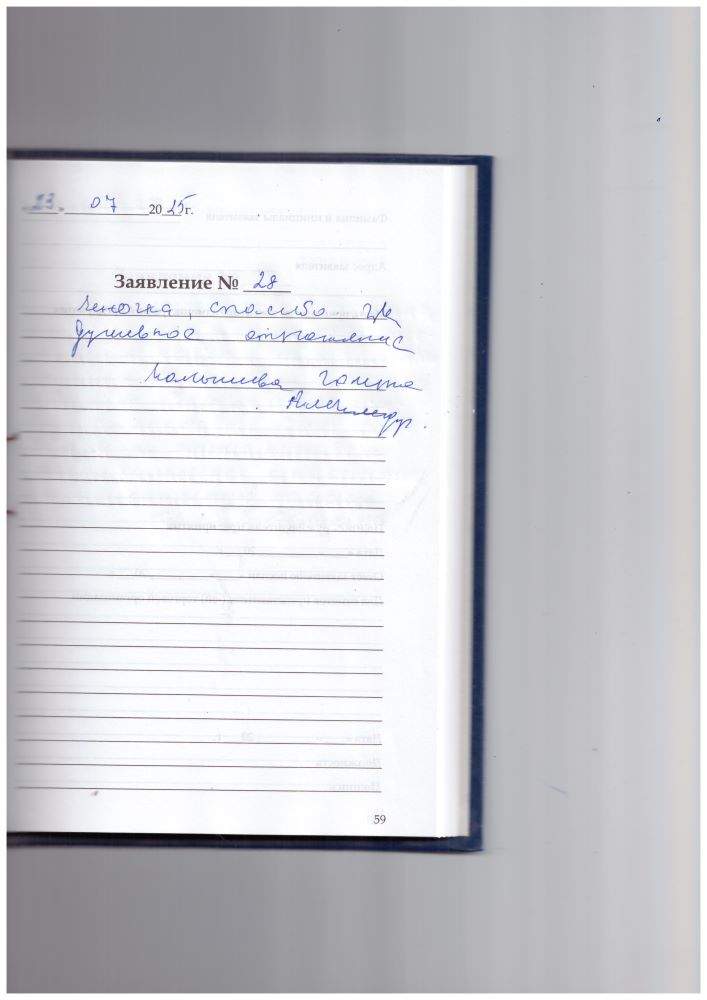 23. 07 2025г.
Заявление № 28
Леночка, спасибо за
душевное отношение
Малышева Галина
Александр.
59